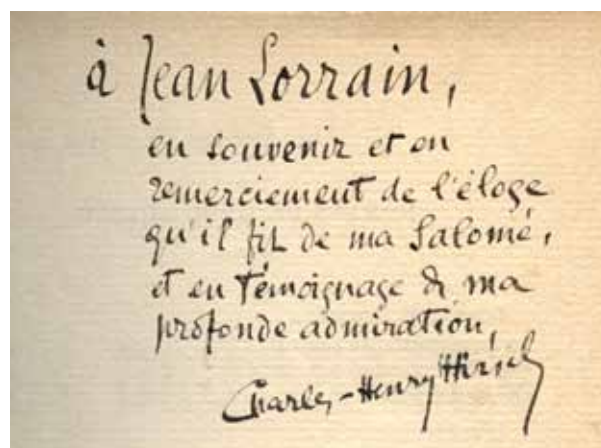 à Jean Lorrain,
en souvenir et en
remerciement de l'éloge
qu'il fit de ma Salomé,
et en témoignage de ma
profonde admiration,
Charles-Henry Hirsch